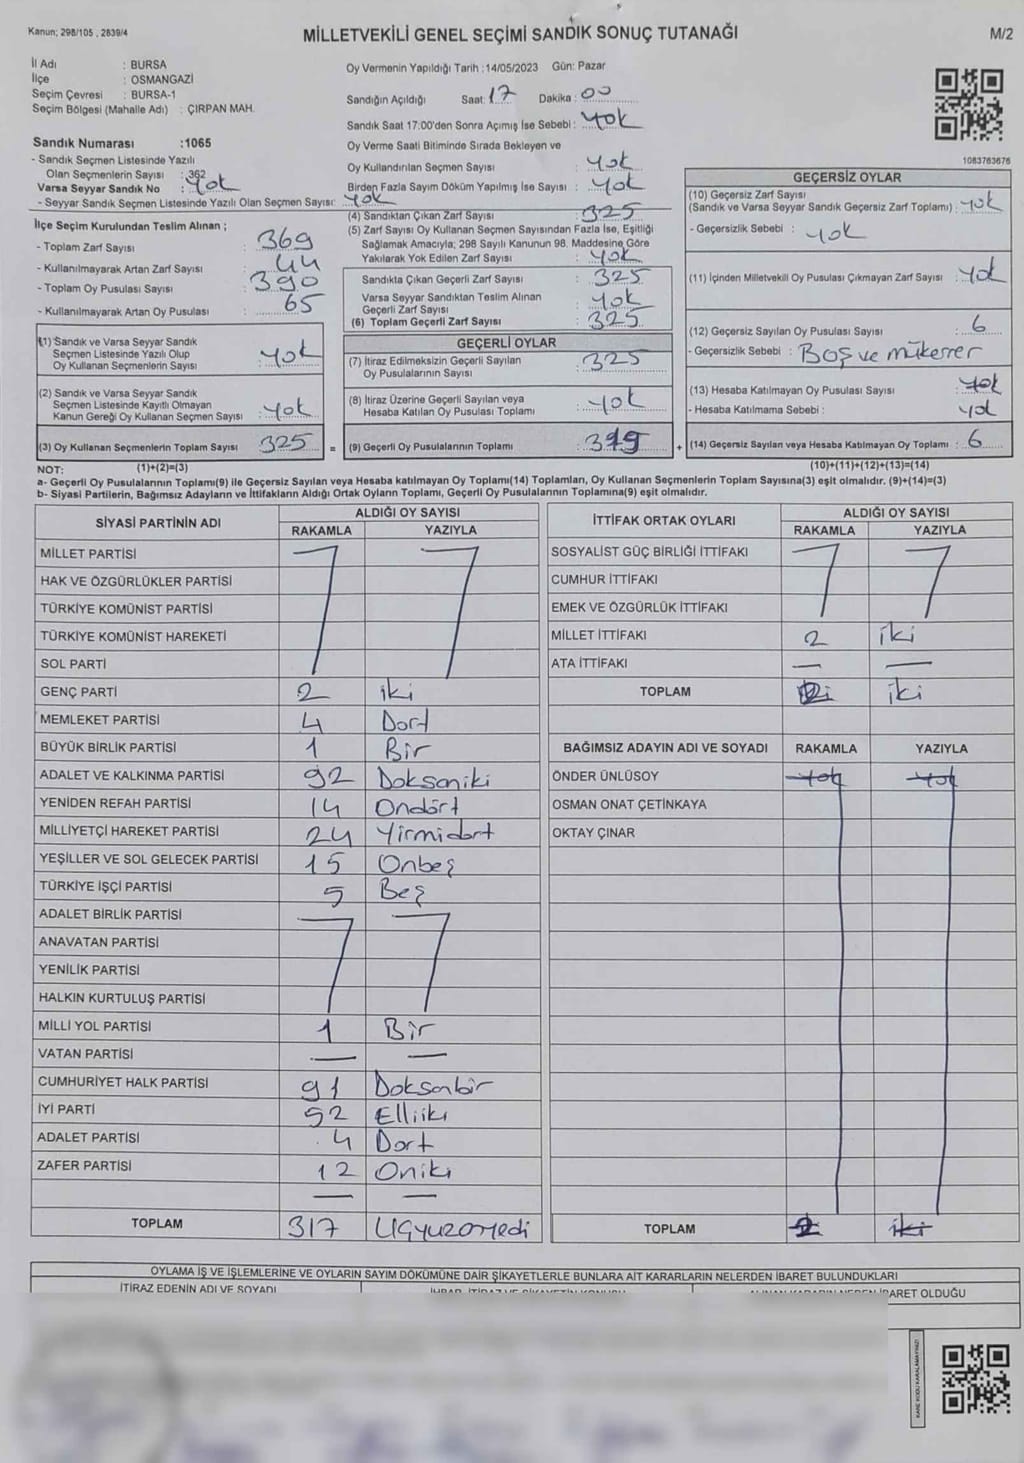 Kanun; 298/105 , 2839/4
MİLLETVEKİLİ GENEL SEÇİMİ SANDIK SONUÇ TUTANAĞI
M/2
İl Adı : BURSA
İlçe : OSMANGAZİ
Seçim Çevresi : BURSA-1
Seçim Bölgesi (Mahalle Adı) : ÇIRPAN MAH.
Sandık Numarası :1065
- Sandık Seçmen Listesinde Yazılı
Olan Seçmenlerin Sayısı : 362
Varsa Seyyar Sandık No : Yok
- Seyyar Sandık Seçmen Listesinde Yazılı Olan Seçmen Sayısı: Yok
İlçe Seçim Kurulundan Teslim Alınan ;
- Toplam Zarf Sayısı : 369
- Kullanılmayarak Artan Zarf Sayısı : 44
- Toplam Oy Pusulası Sayısı : 390
- Kullanılmayarak Artan Oy Pusulası : 65
(1) Sandık ve Varsa Seyyar Sandık
Seçmen Listesinde Yazılı Olup
Oy Kullanan Seçmenlerin Sayısı : Yok
(2) Sandık ve Varsa Seyyar Sandık
Seçmen Listesinde Kayıtlı Olmayan
Kanun Gereği Oy Kullanan Seçmen Sayısı : Yok
(3) Oy Kullanan Seçmenlerin Toplam Sayısı : 325 =
Oy Vermenin Yapıldığı Tarih :14/05/2023 Gün: Pazar
Sandığın Açıldığı Saat: 17 Dakika : 00
Sandık Saat 17:00'den Sonra Açımış İse Sebebi : Yok
Oy Verme Saati Bitiminde Sırada Bekleyen ve
Oy Kullandırılan Seçmen Sayısı : Yok
Birden Fazla Sayım Döküm Yapılmış İse Sayısı : Yok
(4) Sandıktan Çıkan Zarf Sayısı : 325
(5) Zarf Sayısı Oy Kullanan Seçmen Sayısından Fazla İse, Eşitliği
Sağlamak Amacıyla; 298 Sayılı Kanunun 98. Maddesine Göre
Yakılarak Yok Edilen Zarf Sayısı : Yok
Sandıkta Çıkan Geçerli Zarf Sayısı : 325
Varsa Seyyar Sandıktan Teslim Alınan
Geçerli Zarf Sayısı : Yok
(6) Toplam Geçerli Zarf Sayısı : 325
GEÇERLİ OYLAR
(7) İtiraz Edilmeksizin Geçerli Sayılan
Oy Pusulalarının Sayısı : 325
(8) İtiraz Üzerine Geçerli Sayılan veya
Hesaba Katılan Oy Pusulası Toplamı : Yok
(9) Geçerli Oy Pusulalarının Toplamı : 319 +
1083763676
GEÇERSİZ OYLAR
(10) Geçersiz Zarf Sayısı
(Sandık ve Varsa Seyyar Sandık Geçersiz Zarf Toplamı) : Yok
- Geçersizlik Sebebi : Yok
(11) İçinden Milletvekili Oy Pusulası Çıkmayan Zarf Sayısı : Yok
(12) Geçersiz Sayılan Oy Pusulası Sayısı : 6
- Geçersizlik Sebebi : Boş ve mükerrer
(13) Hesaba Katılmayan Oy Pusulası Sayısı : Yok
- Hesaba Katılmama Sebebi : Yok
(14) Geçersiz Sayılan veya Hesaba Katılmayan Oy Toplamı : 6
NOT: (1)+(2)=(3) (10)+(11)+(12)+(13)=(14)
a- Geçerli Oy Pusulalarının Toplamı(9) ile Geçersiz Sayılan veya Hesaba katılmayan Oy Toplamı(14) Toplamları, Oy Kullanan Seçmenlerin Toplam Sayısına(3) eşit olmalıdır. (9)+(14)=(3)
b- Siyasi Partilerin, Bağımsız Adayların ve İttifakların Aldığı Ortak Oyların Toplamı, Geçerli Oy Pusulalarının Toplamına(9) eşit olmalıdır.
SİYASİ PARTİNİN ADI ALDIĞI OY SAYISI
RAKAMLA YAZIYLA
MİLLET PARTİSİ
HAK VE ÖZGÜRLÜKLER PARTİSİ
TÜRKİYE KOMÜNİST PARTİSİ
TÜRKİYE KOMÜNİST HAREKETİ
SOL PARTİ
GENÇ PARTİ 2 iki
MEMLEKET PARTİSİ 4 Dört
BÜYÜK BİRLİK PARTİSİ 1 Bir
ADALET VE KALKINMA PARTİSİ 92 Doksaniki
YENİDEN REFAH PARTİSİ 14 Ondört
MİLLİYETÇİ HAREKET PARTİSİ 24 Yirmidört
YEŞİLLER VE SOL GELECEK PARTİSİ 15 Onbeş
TÜRKİYE İŞÇİ PARTİSİ 5 Beş
ADALET BİRLİK PARTİSİ
ANAVATAN PARTİSİ
YENİLİK PARTİSİ
HALKIN KURTULUŞ PARTİSİ
MİLLİ YOL PARTİSİ 1 Bir
VATAN PARTİSİ — —
CUMHURİYET HALK PARTİSİ 91 Doksanbir
İYİ PARTİ 52 Elliiki
ADALET PARTİSİ 4 Dört
ZAFER PARTİSİ 12 Oniki
— —
TOPLAM 317 Üçyüzonyedi
İTTİFAK ORTAK OYLARI ALDIĞI OY SAYISI
RAKAMLA YAZIYLA
SOSYALİST GÜÇ BİRLİĞİ İTTİFAKI
CUMHUR İTTİFAKI
EMEK VE ÖZGÜRLÜK İTTİFAKI
MİLLET İTTİFAKI 2 iki
ATA İTTİFAKI — —
TOPLAM iki
BAĞIMSIZ ADAYIN ADI VE SOYADI RAKAMLA YAZIYLA
ÖNDER ÜNLÜSOY Yok Yok
OSMAN ONAT ÇETİNKAYA
OKTAY ÇINAR
TOPLAM 2 iki
OYLAMA İŞ VE İŞLEMLERİNE VE OYLARIN SAYIM DÖKÜMÜNE DAİR ŞİKAYETLERLE BUNLARA AİT KARARLARIN NELERDEN İBARET BULUNDUKLARI
İTİRAZ EDENİN ADI VE SOYADI
İBARET OLDUĞU